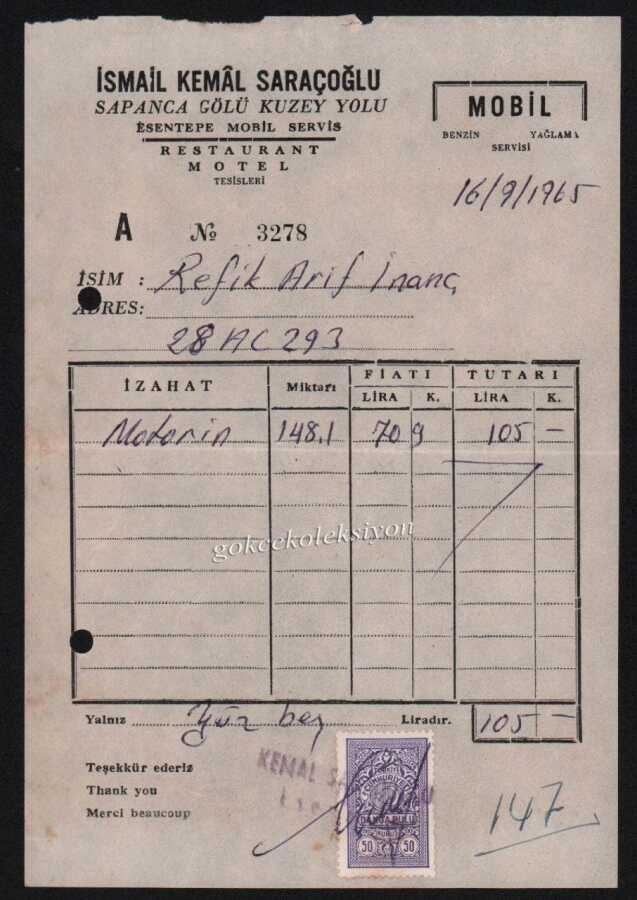 İSMAİL KEMÂL SARAÇOĞLU
SAPANCA GÖLÜ KUZEY YOLU
ESENTEPE MOBİL SERVİS
RESTAURANT
MOTEL
TESİSLERİ
MOBİL
BENZİN YAĞLAMA
SERVİSİ
16/9/1965
A № 3278
İSİM : Refik Arif İnanç
ADRES:
28 AC 293
İZAHAT Miktarı FİATI TUTARI
LİRA K. LİRA K.
Motorin 148.1 70 9 105 -
gokcekoleksiyon
Yalnız Yüz beş Liradır. 105 -
Teşekkür ederiz
Thank you
Merci beaucoup
KEMAL
CUMHURİYETİ
DAMGA PULU
KURUŞ
50 50
147